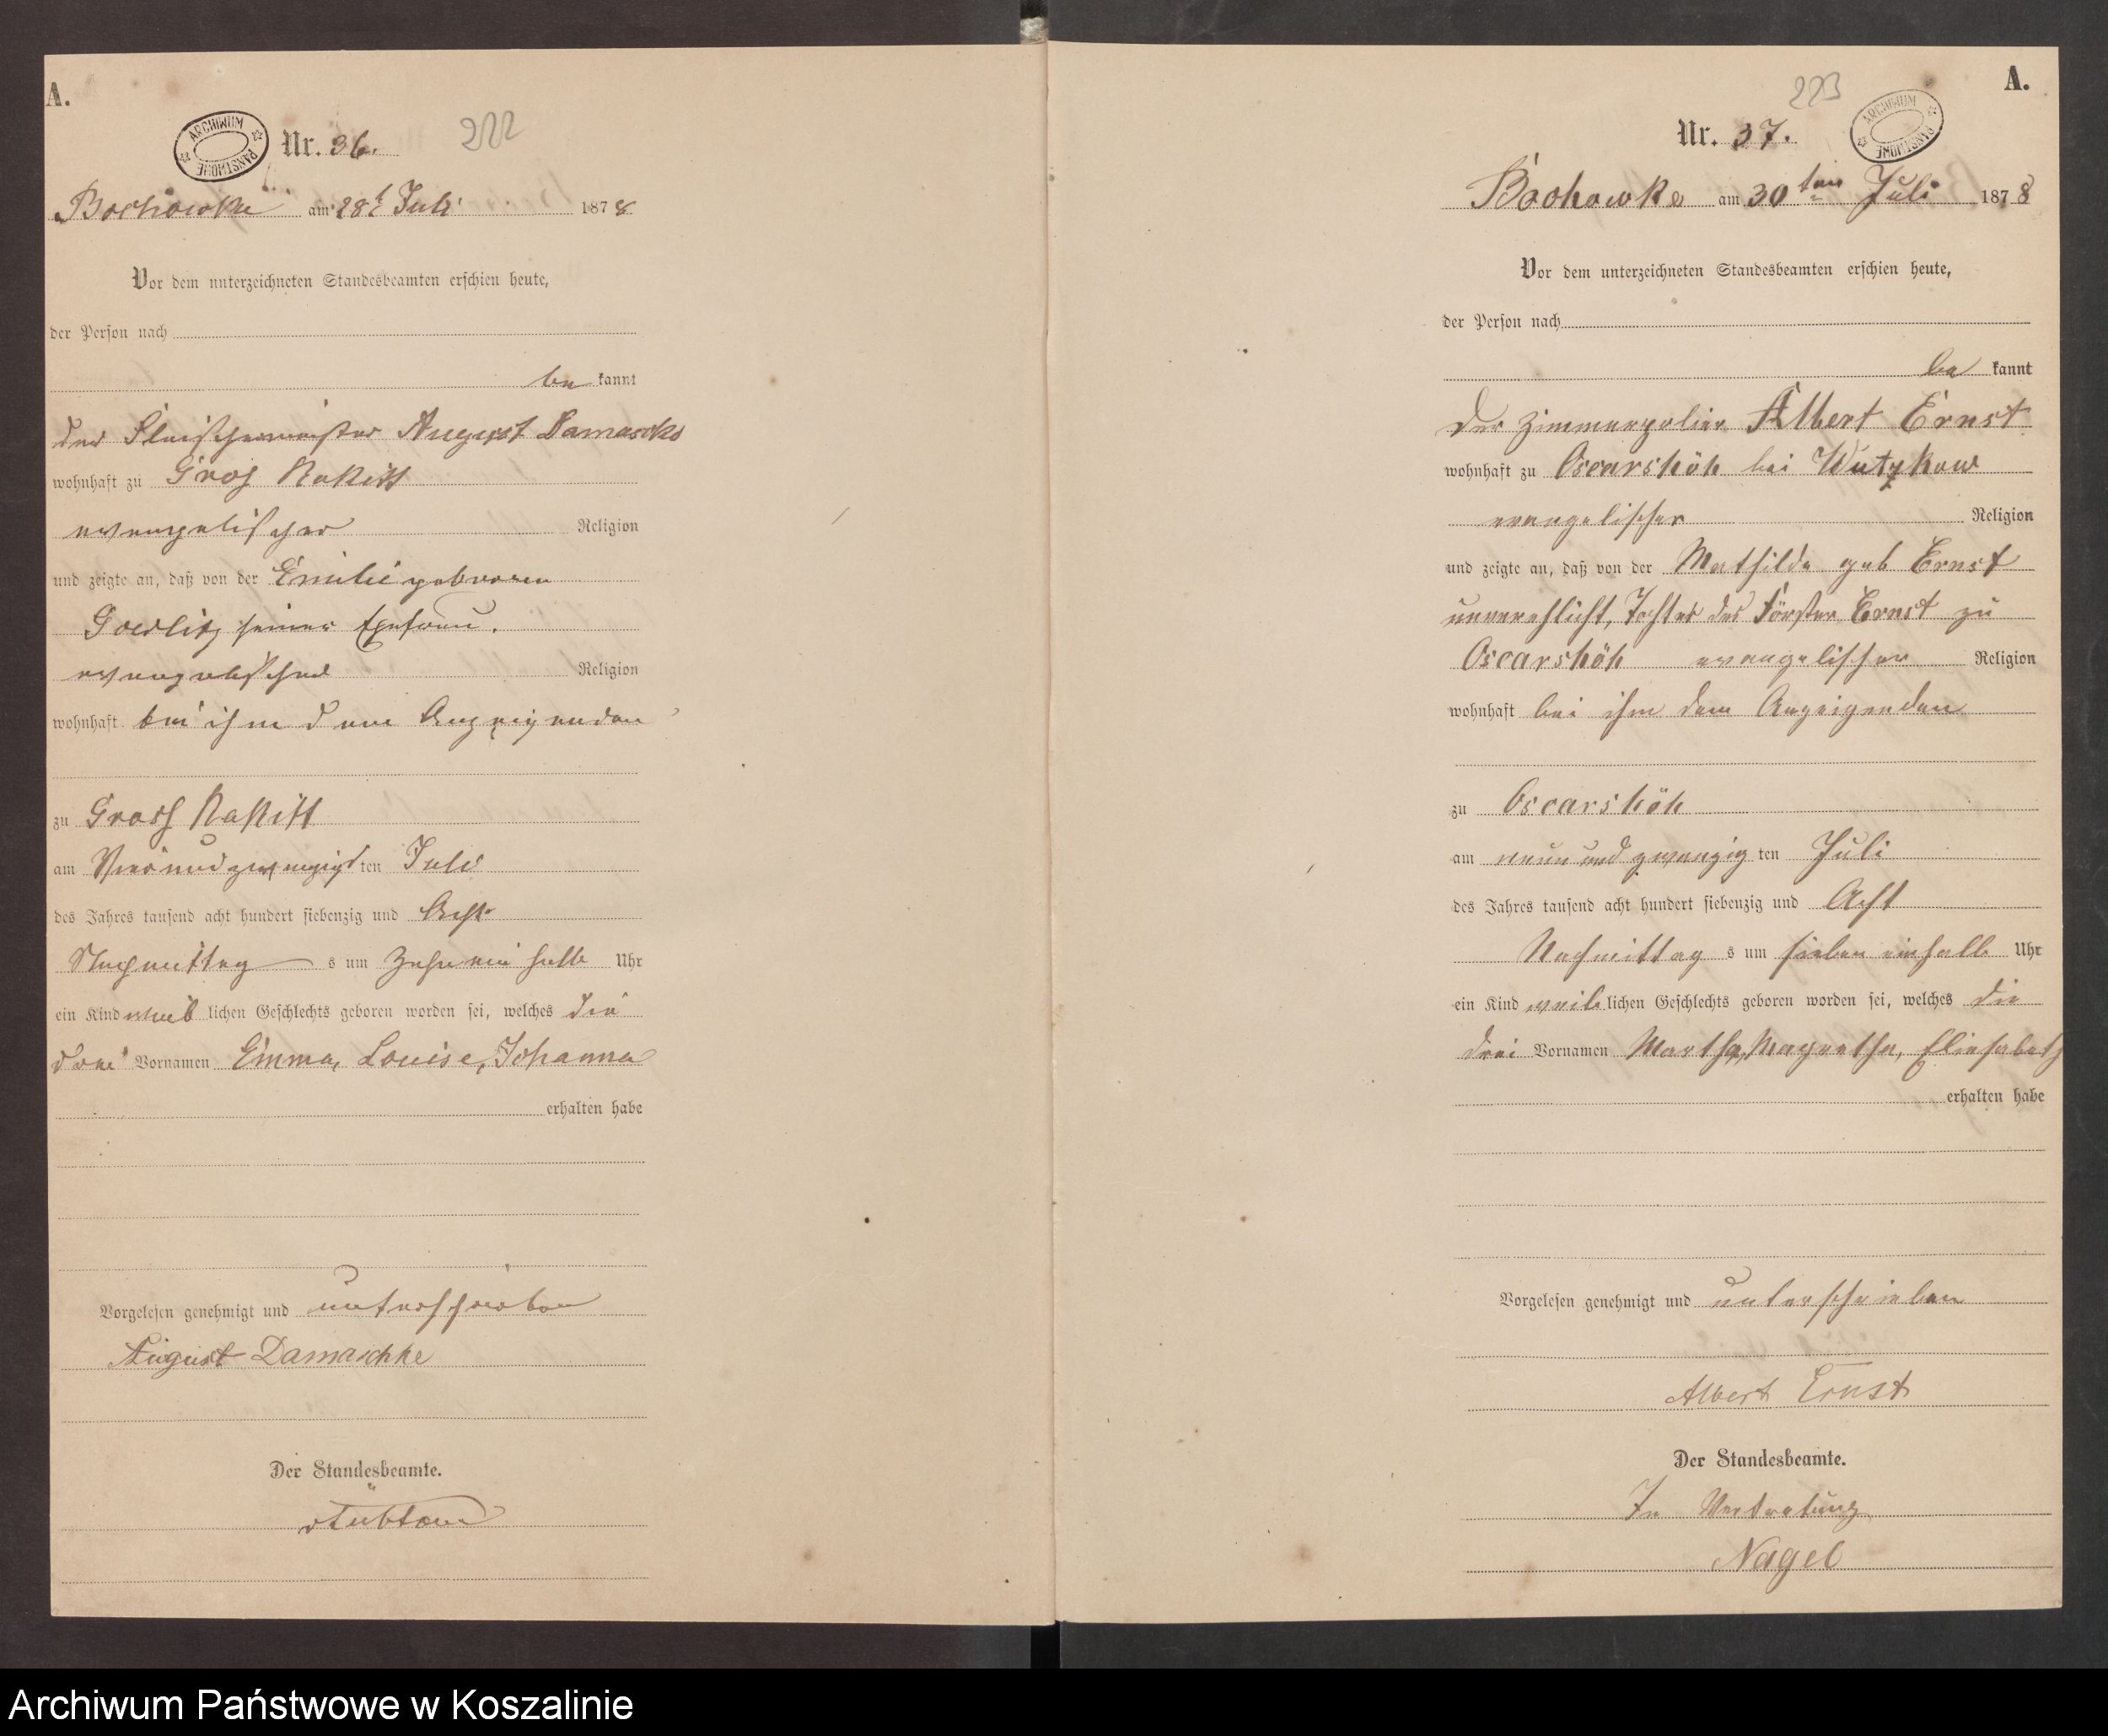 A.
ARCHIWUM PAŃSTWOWE
Nr. 36.
222
Bochowke am 28t Juli 1878
Vor dem unterzeichneten Standesbeamten erschien heute,
der Person nach
be kannt
der Fleischermeister August Damascke
wohnhaft zu Gros Rakitt
evangelischer Religion
und zeigte an, daß von der Emilie geborene
Goerlitz seiner Ehefrau.
evangelischer Religion
wohnhaft bei ihm dem Anzeigenden
zu Gross Rakitt
am Vierundzwanzigsten Juli
des Jahres tausend acht hundert siebenzig und Acht
Nachmittag s um Zehneinhalb Uhr
ein Kind weib lichen Geschlechts geboren worden sei, welches die
drei Vornamen Emma, Louise, Johanna
erhalten habe
Vorgelesen genehmigt und unterschrieben
August Damaschke
Der Standesbeamte.
A.
223
ARCHIWUM PAŃSTWOWE
Nr. 37.
Bochowke am 30ten Juli 1878
Vor dem unterzeichneten Standesbeamten erschien heute,
der Person nach
be kannt
der Zimmerpolier Albert Ernst
wohnhaft zu Oscarshöh bei Wutzkow
evangelischer Religion
und zeigte an, daß von der Mathilde geb Ernst
unverehlicht, Tochter des Förster Ernst zu
Oscarshöh evangelischer Religion
wohnhaft bei ihm dem Anzeigenden
zu Oscarshöh
am neun und zwanzig ten Juli
des Jahres tausend acht hundert siebenzig und Acht
Nachmittag s um sieben einhalb Uhr
ein Kind weib lichen Geschlechts geboren worden sei, welches die
drei Vornamen Martha, Magretha, Eliesabeth
erhalten habe
Vorgelesen genehmigt und unterschrieben
Albert Ernst
Der Standesbeamte.
In Vertretung
Nagel
Archiwum Państwowe w Koszalinie